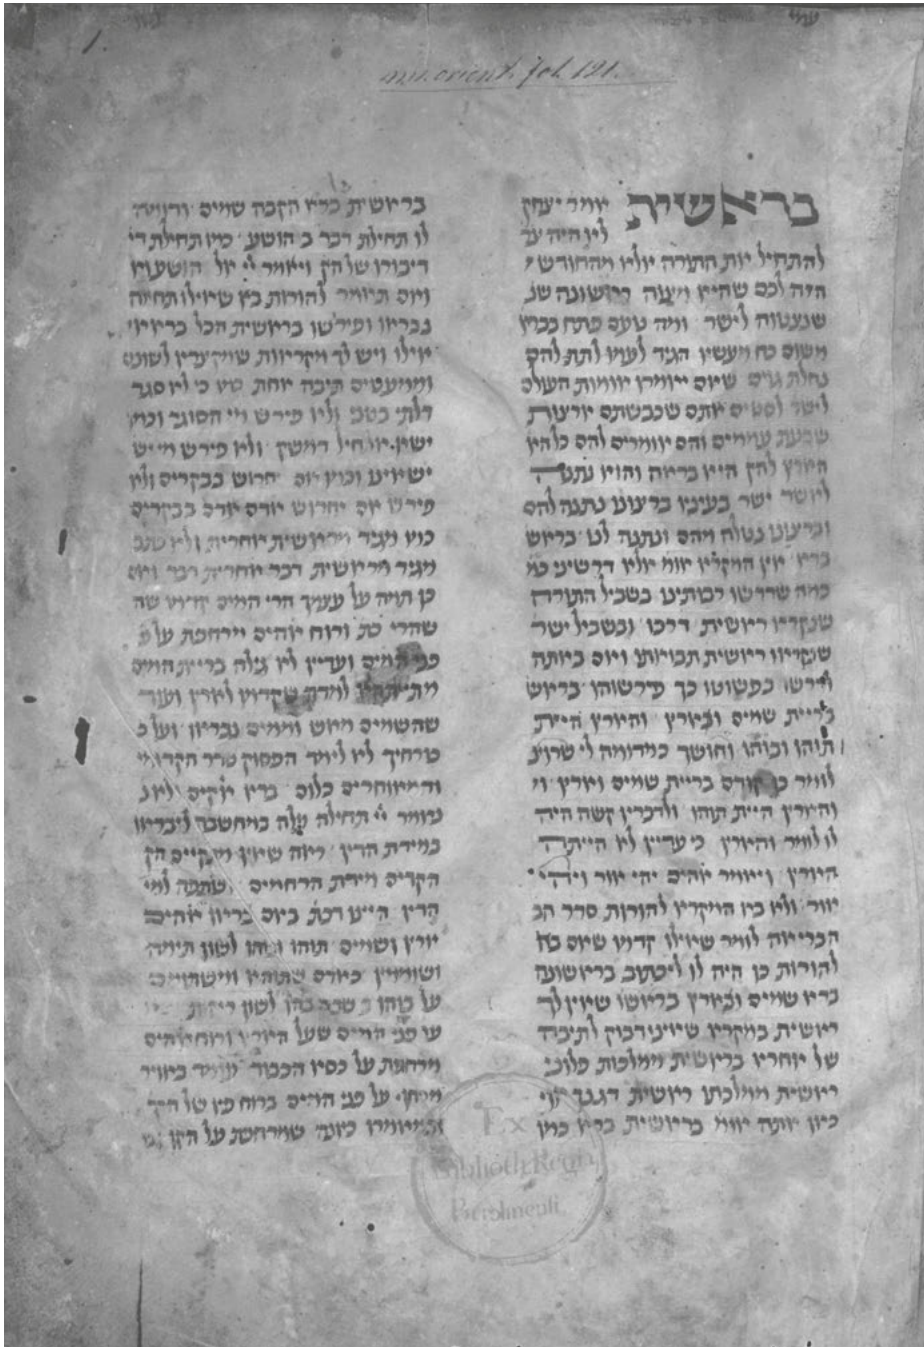 1.
ms. orient. fol. 121.
בראשית אמר יצחק
לא היה צר
להתחיל את התורה אלא מהחודש
הזה לכם שהיא מצוה ראשונה שנ
שנצטוה לישר ומה טעם פתח בברא
משום כח מעשיו הגיד לעמו לתת להם
נחלת גוים שאם יאמרו אומות העולם
לישר לסטים אתם שכבשתם ארצות
שבעת עממים והם אומרים להם כל הא
הארץ להק היא בראה והוא נתנה
לאשר ישר בעיניו ברצונו נתנה להם
וברצונו נטלה מהם ונתנה לנו בראש
ברא אין המקרא אומ אלא דרשיני כמ
כמה שדרשו רבותינו בשביל התורה
שנקראו ראשית דרכו ובשביל ישר
שנקראו ראשית תבואתו ואם באתה
לפרשו כפשוטו כך פירשוהו בראש
בריית שמים וארץ והארץ היית
תוהו ובוהו וחושך
לומר כן קודם בריית שמים וארץ וי
והארץ היית תוהו ולדברין קשה היה
לו לומר והארץ כי עדיין לא הייתה
הארץ ויאמר אהים יהי אור ויהי
אור ולא בא המקרא להורות סדר הב
הברייה לומר שאילו קדמו שאם בא
להורות כן היה לו לכתוב בראשונה
ברא שמים וארץ בראשו שאין לך
ראשית במקרא שאינו דבוק לתיבה
של אחריו בראשית ממלכות פלוני
ראשית ממלכתו ראשית דגנך
כאן אתה אומ בראשית ברא כמו
בראשית ברא הקבה שמים ודומה
לו תחילת דבר ב הושע כמו תחילת די
דיבורו של הק ויאמר לי אל הושע
ואם תאמר להורות בא שאילו תחילה
נבראו ופירשו בראשית הכל ברא
אילו ויש לך מקריאות שמקצרין לשונם
וממעטים תיבה אחת כמו כי לא סגר
דלתי בטני ולא פירש מי הסוגר וכמו
ישא את חיל דמשק ולא פירש מי יש
ישאיינו וכמו אם יחרוש בבקרים ולא
פירש אם יחרוש אדם בבקרים
כמו מגיד מראשית אחרית ולא
מגיד מראשית דבר אחרית דבר ואם
כן תמה על עצמך הרי המים קדמו שה
שהרי כת ורוח אהים מרחפת על פ
פני המים ועדיין לא גילה בריית המים
למדת שקדמו לארץ ועוד
שהשמים מאש וממים נבראו ועל כ
כורחיך לא לימד הפסוק סדר הקדומי
והמאוחרים כלום ברא אקים לא נ
נאמר יי תחילה עלה במחשבה לבראו
במידת הדין ראה שאין מתקיים הק
הקדים מידת הרחמים ושתפה למי
הדין היינו דכת ביום ברוא אהים
ארץ ושמים תוהו ובוהו לשון תימה
ושוממין כאדם שתוהא ומשתומם
על בוהו שבה בהו לשון ריקות
על פני המים שעל הארץ ורוח אהים
מרחפת על כסיו הכבוד עומד באויר
מרחף על פני המים ברוח פיו של הק
ומאמרו כיונה שמרחפת על הקן
Ex
Biblioth. Regia
Berolinensi.